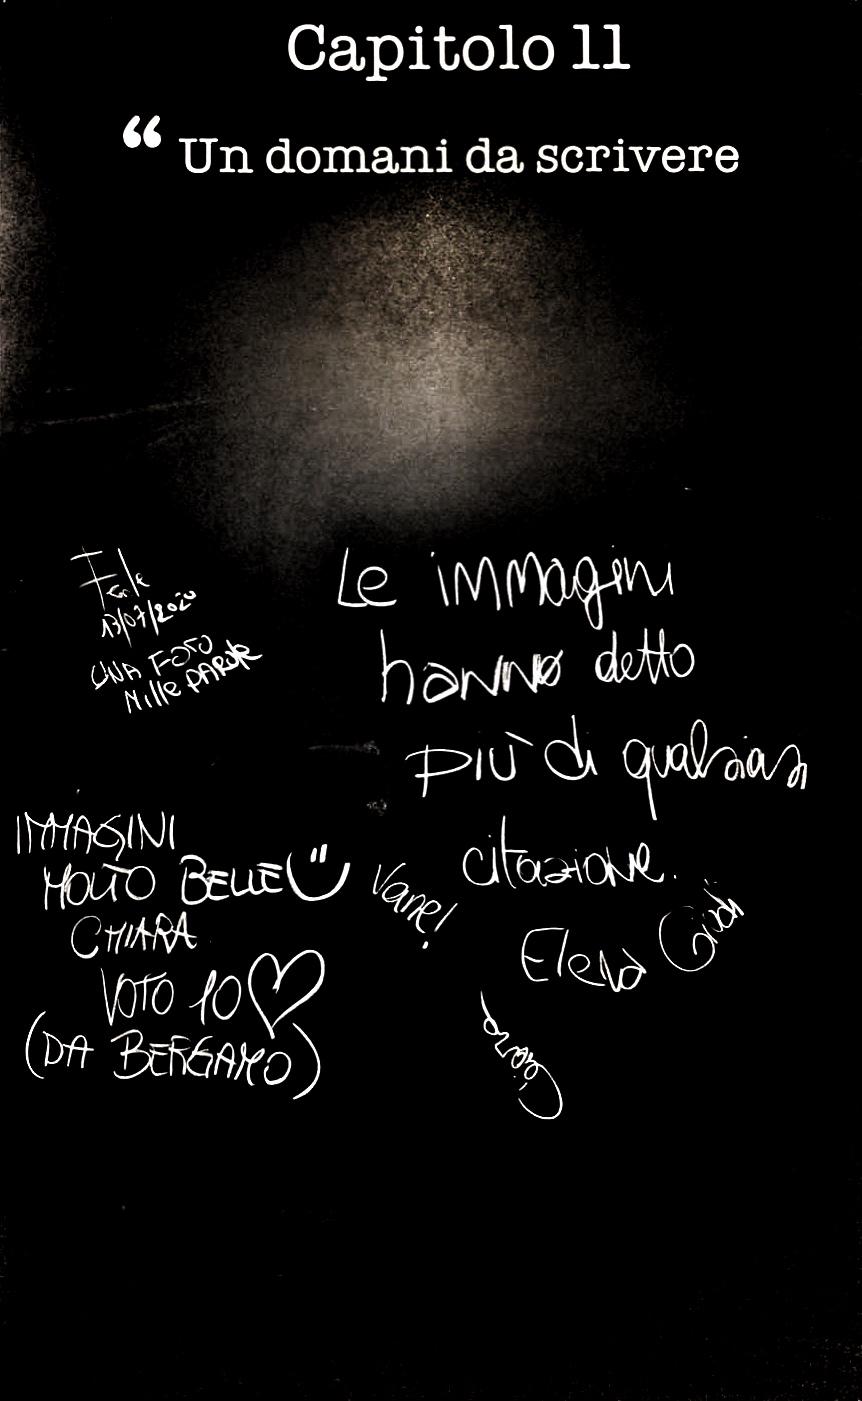 Capitolo 11
“ Un domani da scrivere
13/07/2020
UNA FOTO
Mille PAROLE
Le immagini
hanno detto
più di qualsiasi
citazione.
Elena Giudi
IMMAGINI
MOLTO BELLE
CHIARA
VOTO 10
(DA BERGAMO)
Vane!